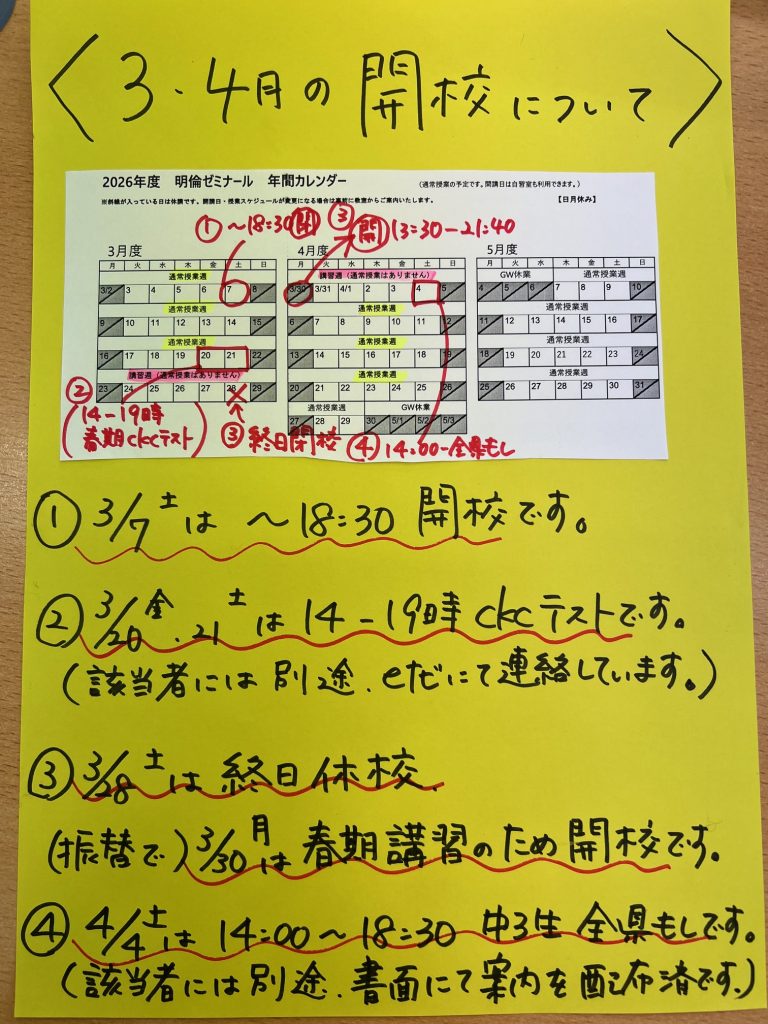 〈3・4月の開校について〉
2026年度 明倫ゼミナール 年間カレンダー
(通常授業の予定です。開講日は自習室も利用できます。)
※斜線が入っている日は休講です。開講日・授業スケジュールが変更になる場合は事前に教室からご案内いたします。
【日月休み】
①～18:30開
③開13:30-21:40
3月度
月 火 水 木 金 土 日
通常授業週
3/2 3 4 5 6 7 8
通常授業週
9 10 11 12 13 14 15
通常授業週
16 17 18 19 20 21 22
講習週(通常授業はありません)
23 24 25 26 27 28 29
4月度
月 火 水 木 金 土 日
講習週(通常授業はありません)
3/30 3/31 4/1 2 3 4 5
通常授業週
6 7 8 9 10 11 12
通常授業週
13 14 15 16 17 18 19
通常授業週
20 21 22 23 24 25 26
通常授業週 GW休業
27 28 29 30 5/1 5/2 5/3
5月度
月 火 水 木 金 土 日
GW休業 通常授業週
4 5 6 7 8 9 10
通常授業週
11 12 13 14 15 16 17
通常授業週
18 19 20 21 22 23 24
通常授業週
25 26 27 28 29 30 31
②
(14-19時
春期ckcテスト)
③終日閉校
④14:00-全県もし
①3/7土は ～18:30 開校です。
②3/20金・21土は14-19時ckcテストです。
(該当者には別途、eだにて連絡しています。)
③3/28土は終日休校、
(振替で)3/30月は春期講習のため開校です。
④4/4土は14:00～18:30 中3生 全県もしです。
(該当者には別途、書面にて案内を配布済です。)